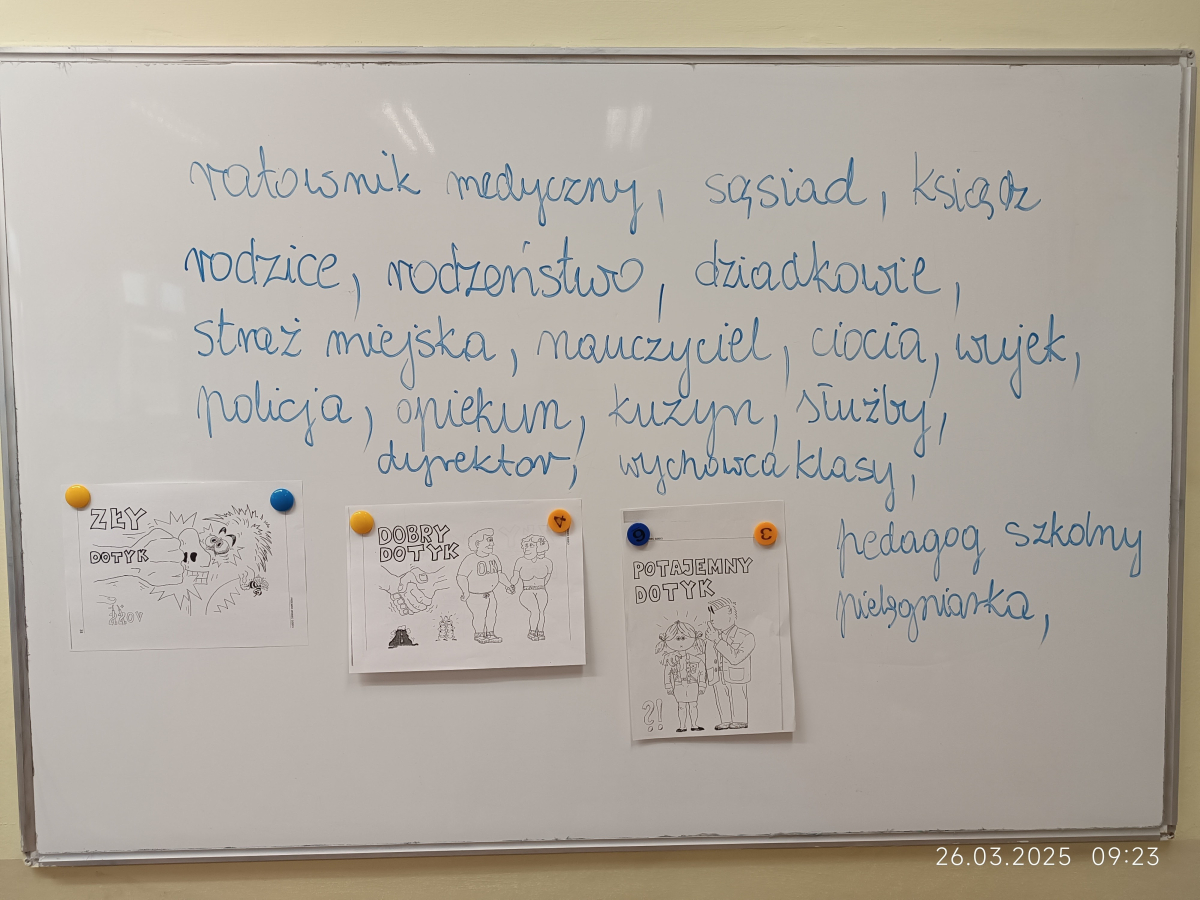 ratownik medyczny, sąsiad, ksiądz
rodzice, rodzeństwo, dziadkowie,
straż miejska, nauczyciel, ciocia, wujek,
policja, opiekun, kuzyn, służby,
dyrektor, wychowca klasy,
pedagog szkolny
pielęgniarka,
ZŁY
DOTYK
DOBRY
DOTYK
POTAJEMNY
DOTYK
?!
4
6
3
26.03.2025 09:23